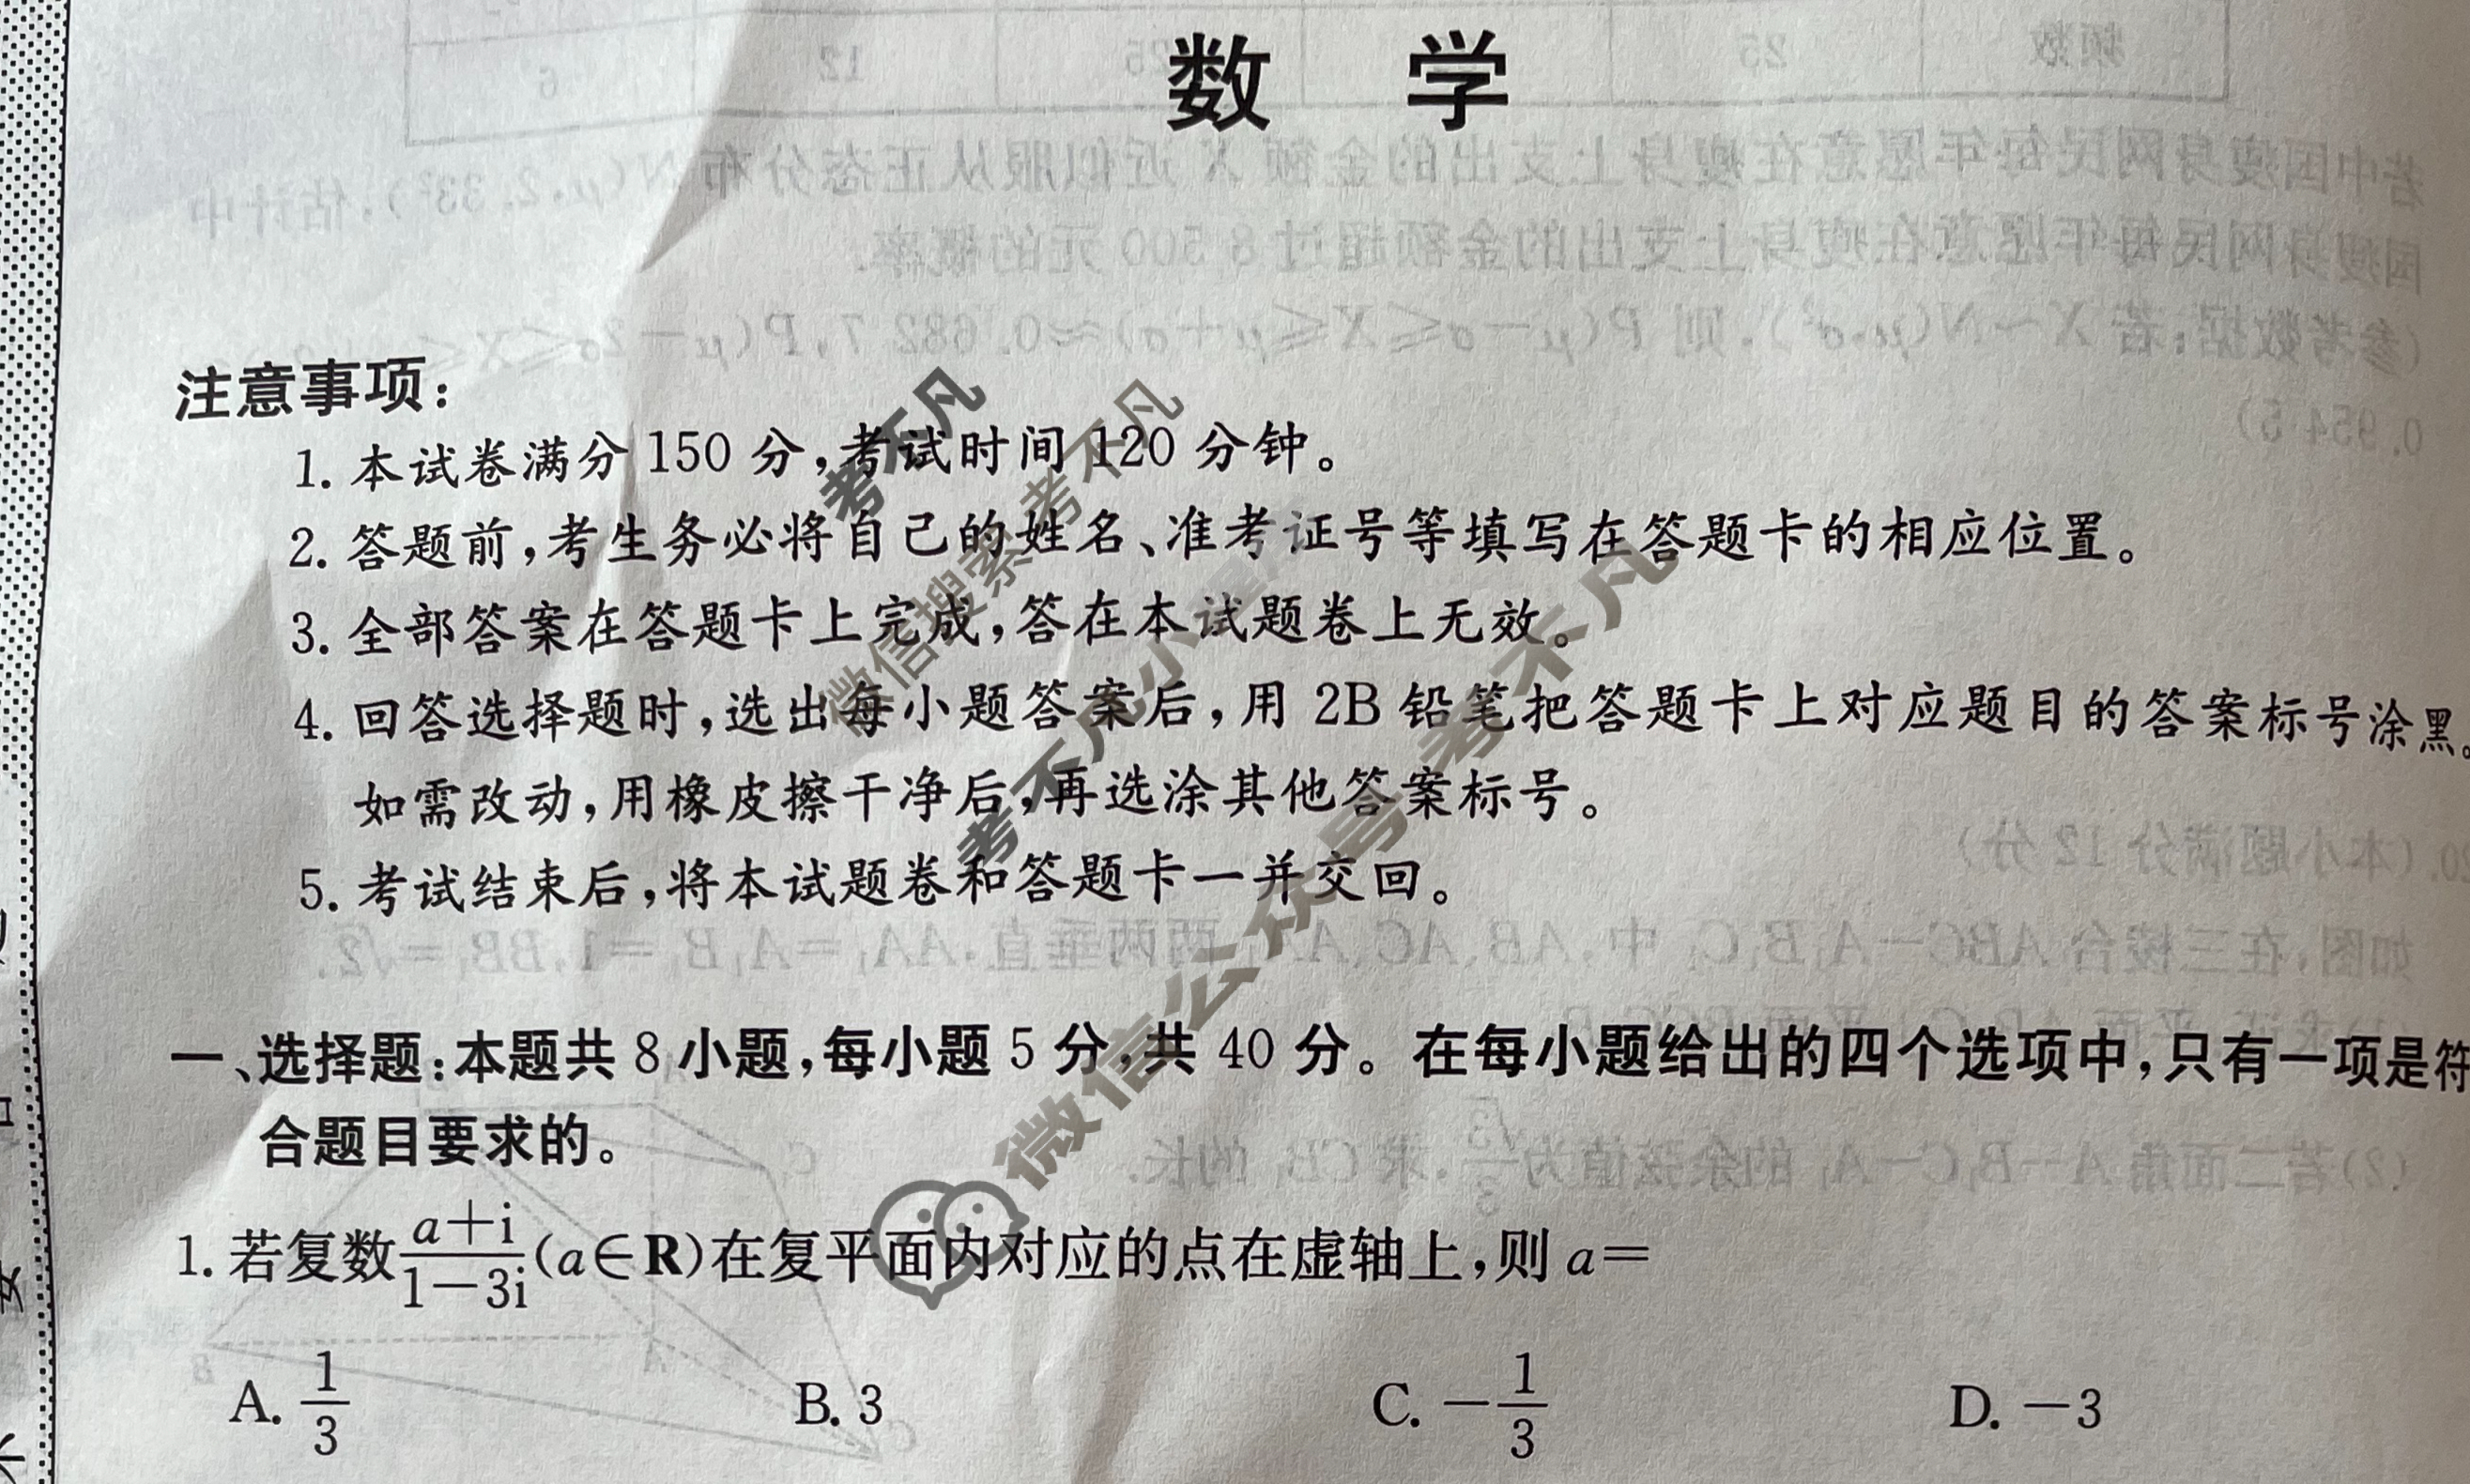 数 学
注意事项：
1. 本试卷满分 150 分，考试时间 120 分钟。
2. 答题前，考生务必将自己的姓名、准考证号等填写在答题卡的相应位置。
3. 全部答案在答题卡上完成，答在本试题卷上无效。
4. 回答选择题时，选出每小题答案后，用 2B 铅笔把答题卡上对应题目的答案标号涂黑。
如需改动，用橡皮擦干净后，再选涂其他答案标号。
5. 考试结束后，将本试题卷和答题卡一并交回。
一、选择题：本题共 8 小题，每小题 5 分，共 40 分。在每小题给出的四个选项中，只有一项是符
合题目要求的。
1. 若复数\frac{a+i}{1-3i}(a∈R)在复平面内对应的点在虚轴上，则 a=
A. \frac{1}{3} B. 3 C. -\frac{1}{3} D. -3
考不凡
微信搜索 考不凡
考不凡小
微信公众号 考不凡